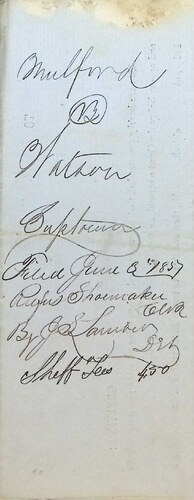 Mulford
vs
Watson
Filed June 3rd 1857
Rufus Shoemaker
Clk
By J S Lambert
Dty
Sheff Fees 4.50